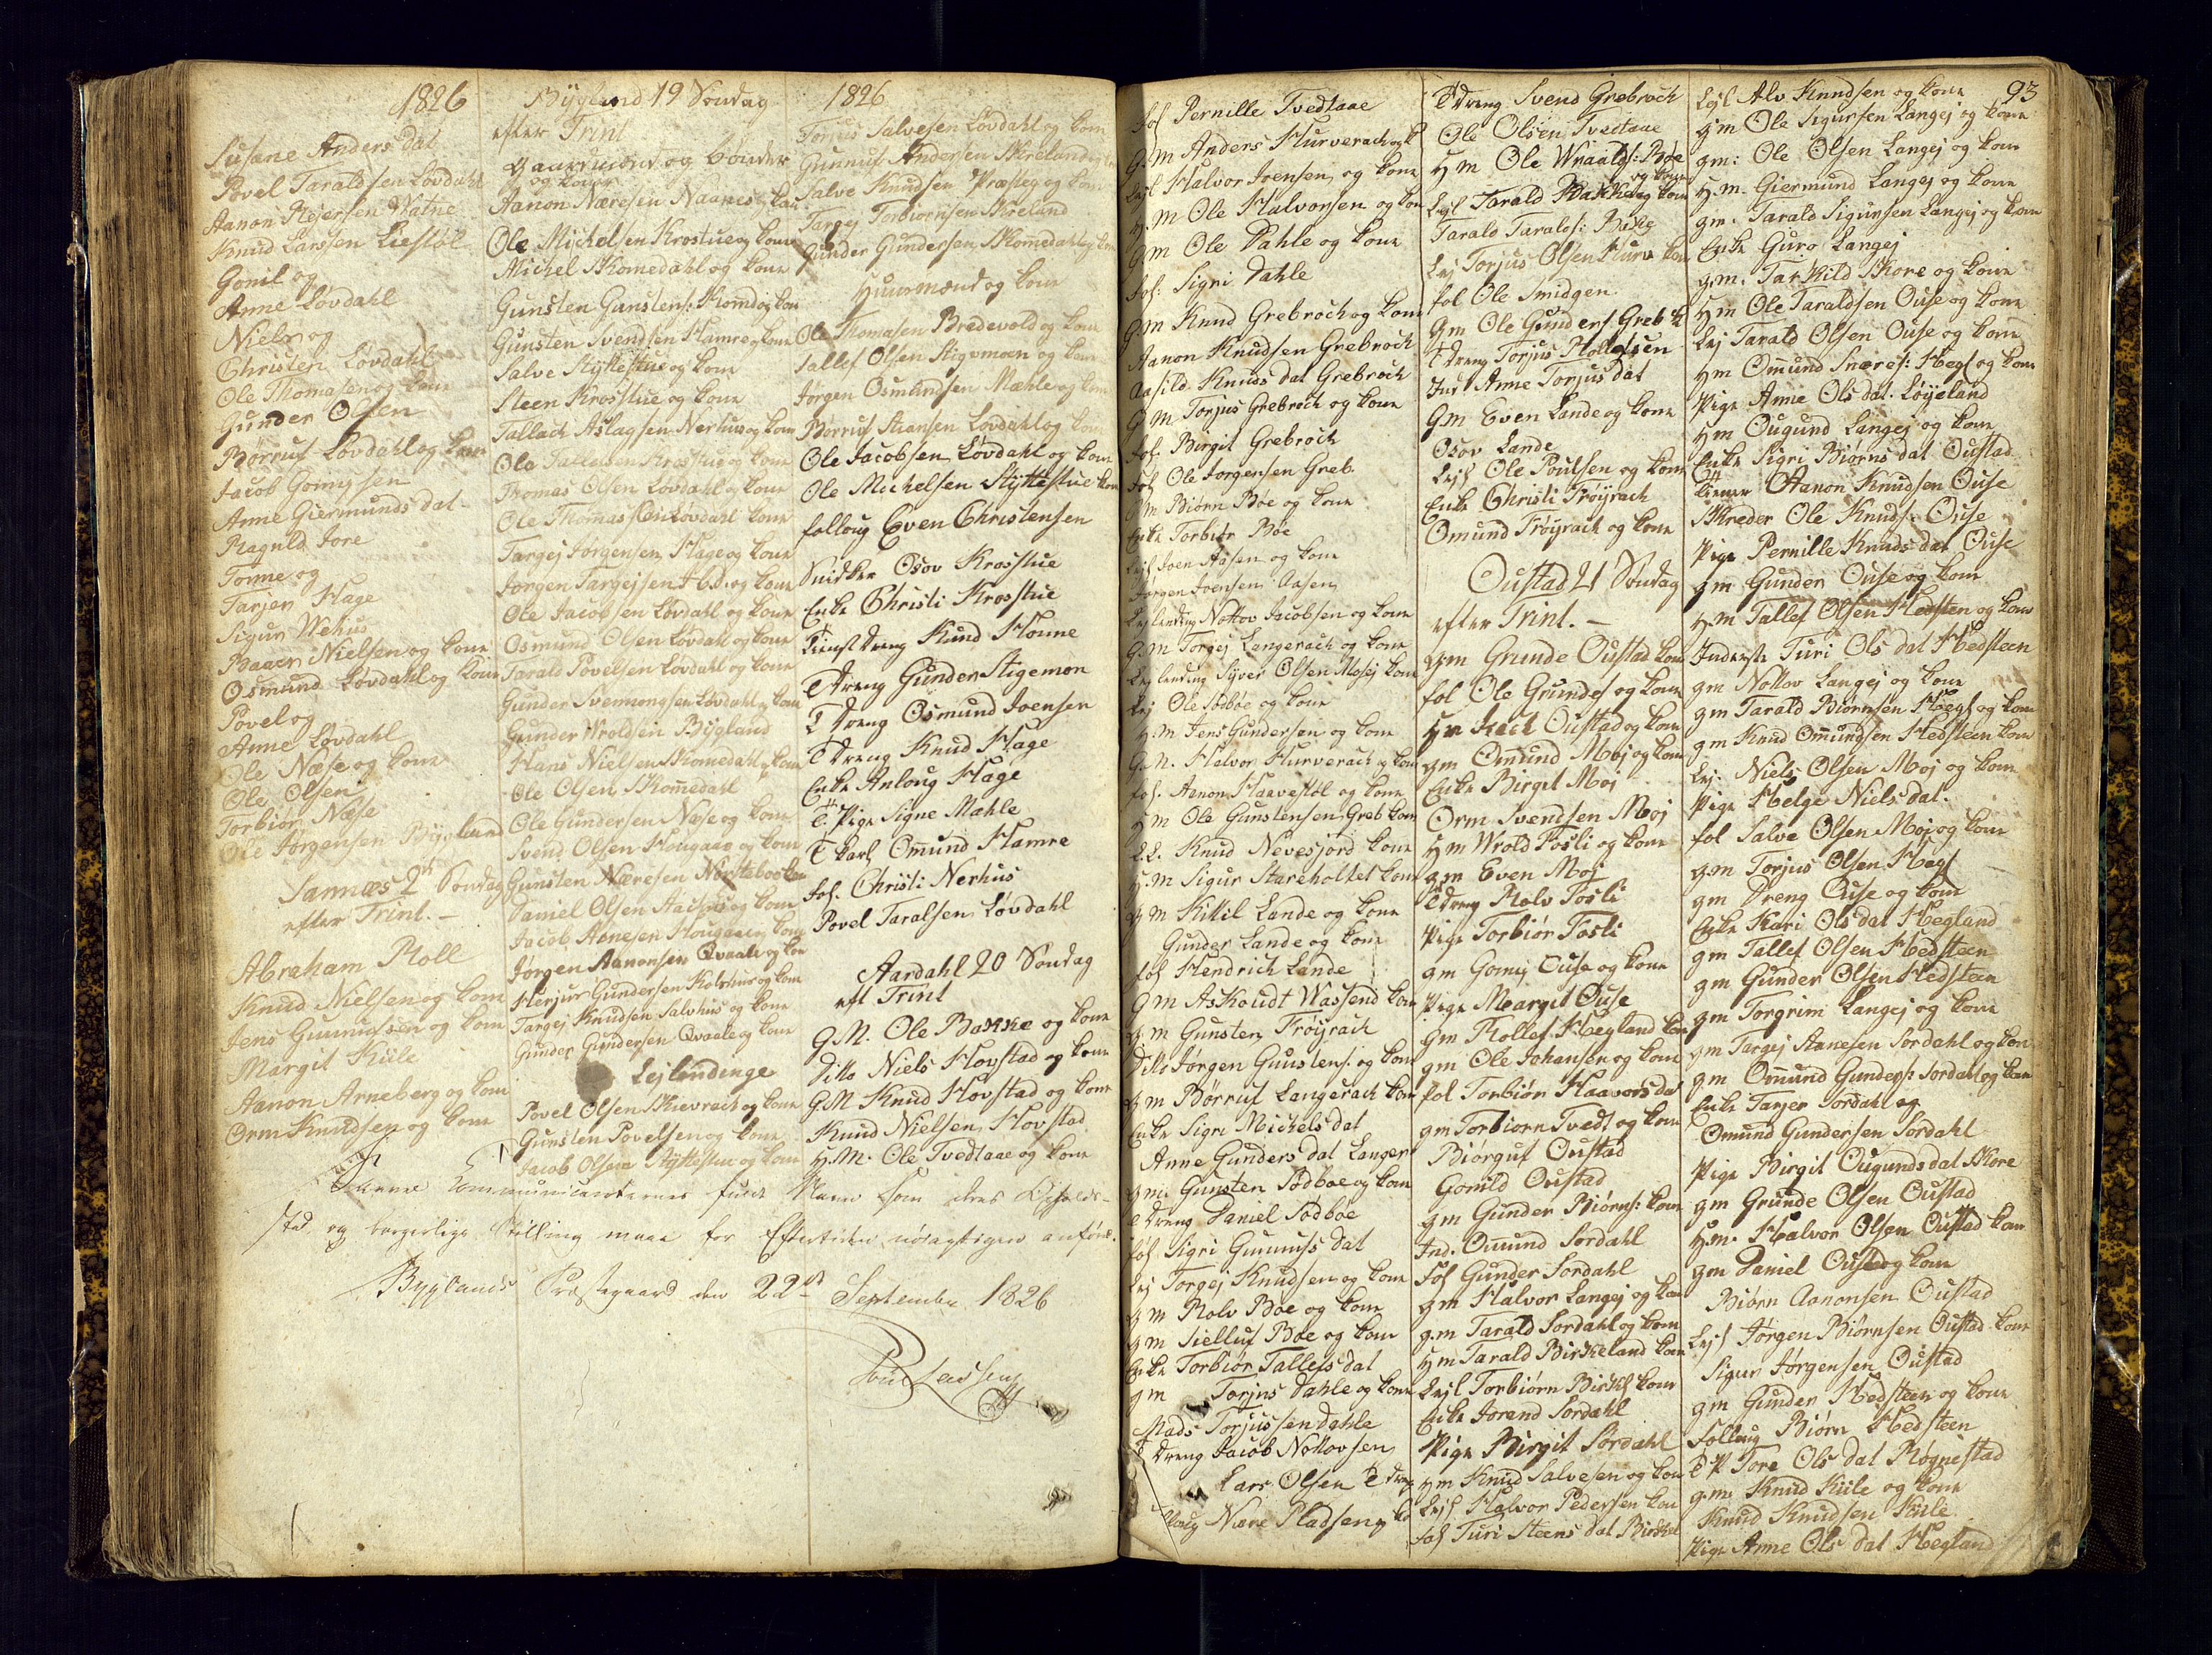 1826
Susane Anders dat
Povel Taraldsen Løvdahl
Aanon Rejersen Watne
Knud Larssen Liestøl
Gonil og
Anne Løvdahl
Niels og
Christen Løvdahl
Ole Thomasen og kone
Gunder Olsen
Børruf Løvdahl og kone
Jacob Gomissen
Anne Giermunds dat
Ragnld Jore
Tonne og
Tarjer Hage
Sigur Wehus
Baaer Nielsen og kone
Osmund Løvdahl og kone
Povel og
Anne Løvdahl
Ole Næse og kone
Ole Olsen
Torbiør Næse
Ole Jørgensen Bÿgland
Sannæs 2den Søndag
efter Trint. –
Abraham Roll
Knud Nielsen og kone
Jens Gunnufssen og kone
Margit Kiile
Aanon Arneberg og kone
Orm Knudsen og kone
Bÿgland 19 Søndag
efter Trint
Gaardmænd og bønder
og koner
Aanon Næresen Naanes kone
Ole Michelsen Krostue og kone
Michel Skomedahl og kone
Gunsten Gunstens: Skomd og kone
Gunsten Svendsen Hamre og kone
Salve Stÿttestue og kone
Steen Krosstue og kone
Tallach Aslagsen Nerhus og kone
Ole Tallevsen Krosstue og kone
Thomas Olsen Løvdahl og kone
Ole Thomassen Løvdahl kone
Targej Jørgensen Hage og kone
Jørgen Targejsen Hbd. og kone
Ole Jacobsen Løvdahl og kone
Osmund Olsen Løvdahl og kone
Tarald Povelsen Løvdahl og kone
Gunder Svennongsen Løvdahl og kone
Gunder Wroldsen Bÿgland
Hans Nielsen Skomedahl og kone
Ole Olsen Skomedahl
Ole Gundersen Næse og kone
Svend Olsen Hougaae og kone
Gunsten Næresen Nerstebøe kone
Daniel Olsen og kone
Jacob Aanesen Hougaae og kone
Jørgen Aanonsen Qvaale og kone
Herjus Gundersen Kolstrue og kone
Targej Knudsen Salvhus og kone
Gunder Gundersen Qvaale og kone
Lejlendinge
Povel Olsen Skrevrack og kone
Gunsten Povelsen og kone
Jacob Olsen Stÿttestue og kone
1826
Torjus Salvesen Løvdahl og kone
Gunnuf Andersen Skreland og kone
Salve Knudsen Præsteg og kone
Targej Torbiørnsen Skreland
Gunder Gundersen Skomedahl og kone
Huusmænd og kone
Ole Thomasen Bredevold og kone
Tallef Olsen Stigemoen og kone
Jørgen Osmundsen Mæhle og kone
Børruf Hansen Løvdahl og kone
Ole Jacobsen Løvdahl og kone
Ole Michelsen Stÿttestue kone
follaug Even Christensen
Snidker Osov Krosstue
Enke Christi Krosstue
Tienst dreng Knud Honne
T dreng Gunder Stigemon
T dreng Osmund Joensen
T dreng Knud Hage
Enke Anlaug Hage
T. Pige Signe Mahle
T Karl Omund Hamre
fol. Christi Nerhus
Povel Taralsen Løvdahl
Aardahl 20 Søndag
eft Trint
G.M. Ole Bakke og kone
Ditto Niels Hovstad og kone
G.M Knud Hovstad og kone
Knud Nielsen Hovstad
H.M. Ole Tvedtaae og kone
Communicanternes fulde Navn som deres Opholds-
sted og borgerlige Stilling maae for Eftertiden nøiagtigen anføres.
Byglands Præstegaard den 22de September 1826
fol Pernille Tvedtaae
G.M Anders Hurverack og k
Lejl Halvor Joensen og kone
H.M Ole Halvorsen og kone
G.M Ole Dahle og kone
fol: Sigri Dahle
G.M Knud Grebrock og kone
Aanon Knudsen Grebrock
Aasild Knuds dat Grebrock
G M Torjus Grebrock og kone
fol. Birgit Grebrock
fol Ole Jørgensen Greb.
G M Biørn Bøe og kone
Enke Torbiør Bøe
Lejl Joen Aasen og kone
Jørgen Joensen Aasen
Lejlending Nottov Jacobsen og kone
G.M Torgej Langerack og kone
Lejlending Siver Olsen Mosej kone
Lej Ole Sødbøe og kone
H.M Jens Gundersen og kone
G.M. Halvor Hurverack og kone
fol. Aanon Haavestøl og kone
H M Ole Gunstensen Greb kone
L.L. Knud Nevesjord kone
H.M Sigur Stareholtet kone
G M Kittil Lande og kone
Gunder Lande og kone
fol Hendrich Lande
G M Askoudt Wassend kone
G.m Gunsten Frøÿrack
Ditto Jørgen Gunstens. og kone
G m Børruf Langerack kone
Enke Sigri Michels dat
Anne Gunders dat Langer
g m. Gunsten Sødbøe og kone
T dreng Daniel Sødbøe
fol Sigri Gunnufs dat
Lej Torgej Knudsen og kone
g m Rolv Bøe og kone
g m Sielluf Bøe og kone
Enke Torbiør Tallefs dat
g m Torjus Dahle og kone
Mads Torjussen Dahle
T dreng Jacob Nottovsen
Lars Olsen T dreng
Nære Pladsen
T dreng Svend Grebrock
Ole Olsen Tvedtaae
H M Ole Wraalds: Bøe
og kone
Lejl Tarald Bakke og kone
Tarald Taralds: Bakke
Lej Torjus Olsen Hurv kone
fol Ole Smidgen
Gm Ole Gunders. Greb k
T dreng Torjus Rollefsen
Ind Anne Torjus dat
Gm Even Lande og kone
Osov Lande
Lejl Ole Poulsen og kone
Enke Christi Frøÿrack
Omund Frøyrack og kone
Oustad 21 Søndag
efter Trint. –
gm Grunde Oustad kone
fol Ole Grundes og kone
Hm Oustad og kone
gm Omund Moj og kone
Enke Birgit Moj
Orm Svendsen Moj
Hm Wrold Fosli og kone
gm Even Moj
T dreng Rolv Fosli
Pige Torbiør Fosli
gm Gomij Ouse og kone
Pige Margit Ouse
Gm Rollef Hegland kone
gm Ole Johansen og kone
fol Torbiør Haavors dat
gm Torbiørn Tvedt og kone
Biørguf Oustad
Gonild Oustad
gm Gunder Biørns: kone
Ind. Omund Sordahl
fol Gunder Sordahl
gm Halvor Langej og kone
g.m Tarald Sordahl og kone
Hm Tarald Birkeland kone
Lejl Torbiørn Birkl kone
Enke Jorend Sordahl
Pige Birgit Sordahl
Hm Knud Salvesen og kone
Lejl Halvor Pedersen kone
fol Turi Steens dat Birkel
93
Lejl Alv Knudsen og kone
g'm Ole Sigursen Langej og kone
gm: Ole Olsen Langej og kone
H.m. Giermund Langej og kone
gm. Tarald Sigursen Langej og kone
Enke Guro Langej
g.m. Tarkild Skore og kone
Hm Ole Taraldsen Ouse og kone
Lej Tarald Olsen Ouse og kone
Hm Omund Snæres: Hegl og kone
Pige Anne Ols dat. Løÿeland
Hm Ougund Langej og kone
Enke Sigri Biørns dat Oustad
Aanon Knudsen Ouse
Skreder Ole Knuds: Ouse
Pige Pernille Knuds dat Ouse
gm Gunder Ouse og kone
H.m Tallef Olsen Hedsten og kone
Inderste Turi Ols dat Hedsteen
gm Nottov Langej og kone
gm Tarald Biørnsen Hegl og kone
gm Knud Omundsen Hedsteen kone
Lej. Niels Olsen Moj og kone
Pige Helge Niels dat.
fol Salve Olsen Moj og kone
gm Torjus Olsen Hegl
gm Dreng Ouse og kone
Enke Kari Ols dat Hegland
gm Tallef Olsen Hedsteen
gm Gunder Olsen Hedsteen
gm Torgrim Langej og kone
gm Targej Aanesen Sordahl og kone
gm Omund Gunders: Sordahl og kone
Enke Tarjer Sordahl og
Omund Gundersen Sordahl
Pige Birgit Ougunds dat Skore
gm Grunde Olsen Oustad
Hm. Halvor Olsen Oustad kone
gm Daniel Oustad og kone
Biørn Aanonsen Oustad
Lejl Jørgen Biørnsen Oustad kone
Sigur Jørgensen Oustad
gm Gunder Hedsteen og kone
Follaug Biørn Hedsteen
T P Tore Ols dat Røgnestad
g.m. Knud Kiile og kone
Knud Knudsen Kiile
Pige Anne Ols dat Hegland